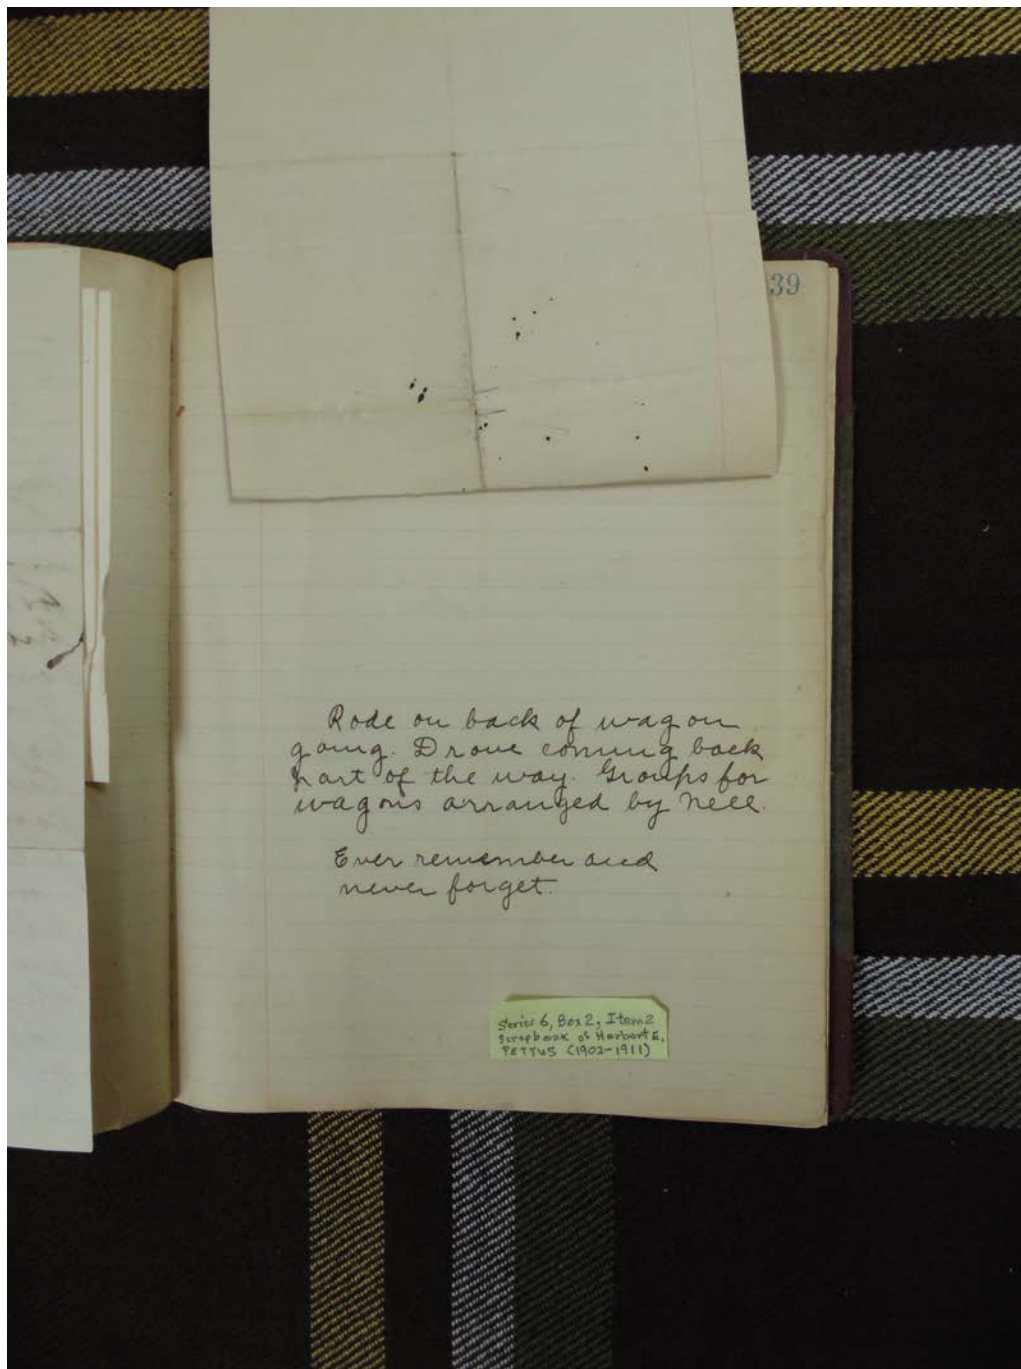 39
Rode on back of wagon
going. Drove coming back
part of the way. Groups for
wagons arranged by Nell.
Ever remember and
never forget.
Series 6, Box 2, Item 2
Scrapbook of Harbert E.
PETTUS (1902-1911)